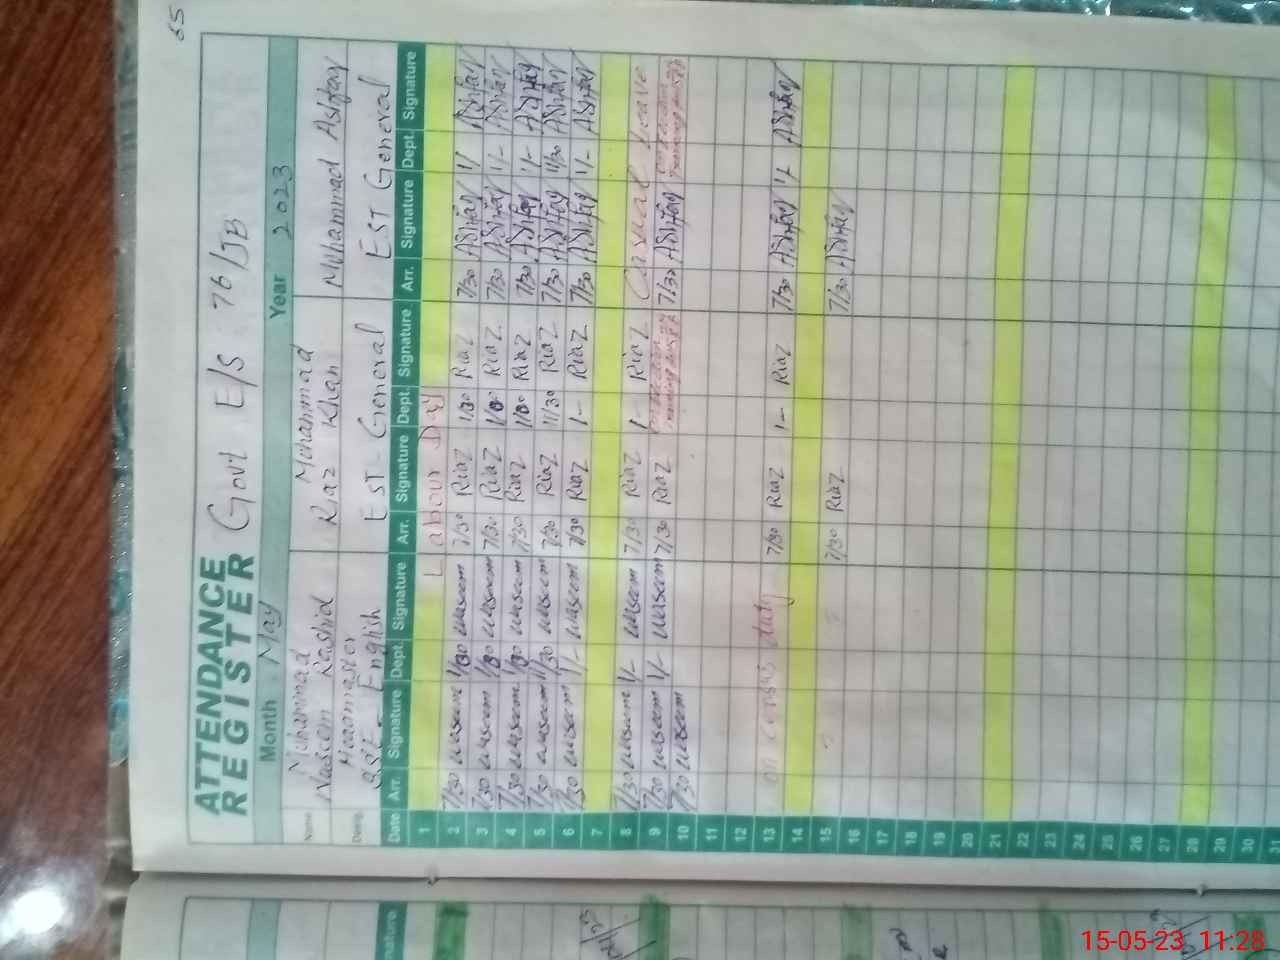 65
ATTENDANCE
REGISTER Govt E/S 76/JB
Month May Year 2023
Name Muhammad Waseem Rashid Muhammad Riaz Khan Muhammad Ashfaq
Desig. Headmaster ESE - English EST - General EST General
Date Arr. Signature Dept. Signature Arr. Signature Dept. Signature Arr. Signature Dept. Signature
1 Labour Day
2 7/30 Waseem 1/00 Waseem 7/30 Riaz 1/00 Riaz 7/30 Ashfaq 1/ Ashfaq
3 7/30 Waseem 1/00 Waseem 7/30 Riaz 1/00 Riaz 7/30 Ashfaq 1/- Ashfaq
4 7/30 Waseem 1/00 Waseem 7/30 Riaz 1/00 Riaz 7/30 Ashfaq 1/- Ashfaq
5 7/30 Waseem 11/30 Waseem 7/30 Riaz 11/30 Riaz 7/30 Ashfaq 11/30 Ashfaq
6 7/30 Waseem 1/- Waseem 7/30 Riaz 1- Riaz 7/30 Ashfaq 1/- Ashfaq
7
8 7/30 Waseem 1/- Waseem 7/30 Riaz 1- Riaz Casual Leave
9 7/30 Waseem 1/- Waseem 7/30 Riaz 7/30 Ashfaq
10 7/30 Waseem
11
12
13 on census duty 7/30 Riaz 1- Riaz 7/30 Ashfaq 1/- Ashfaq
14
15 7/30 Riaz 7/30 Ashfaq
16
17
18
19
20
21
22
23
24
25
26
27
28
29
30
31
nature
15-05-23 11:28